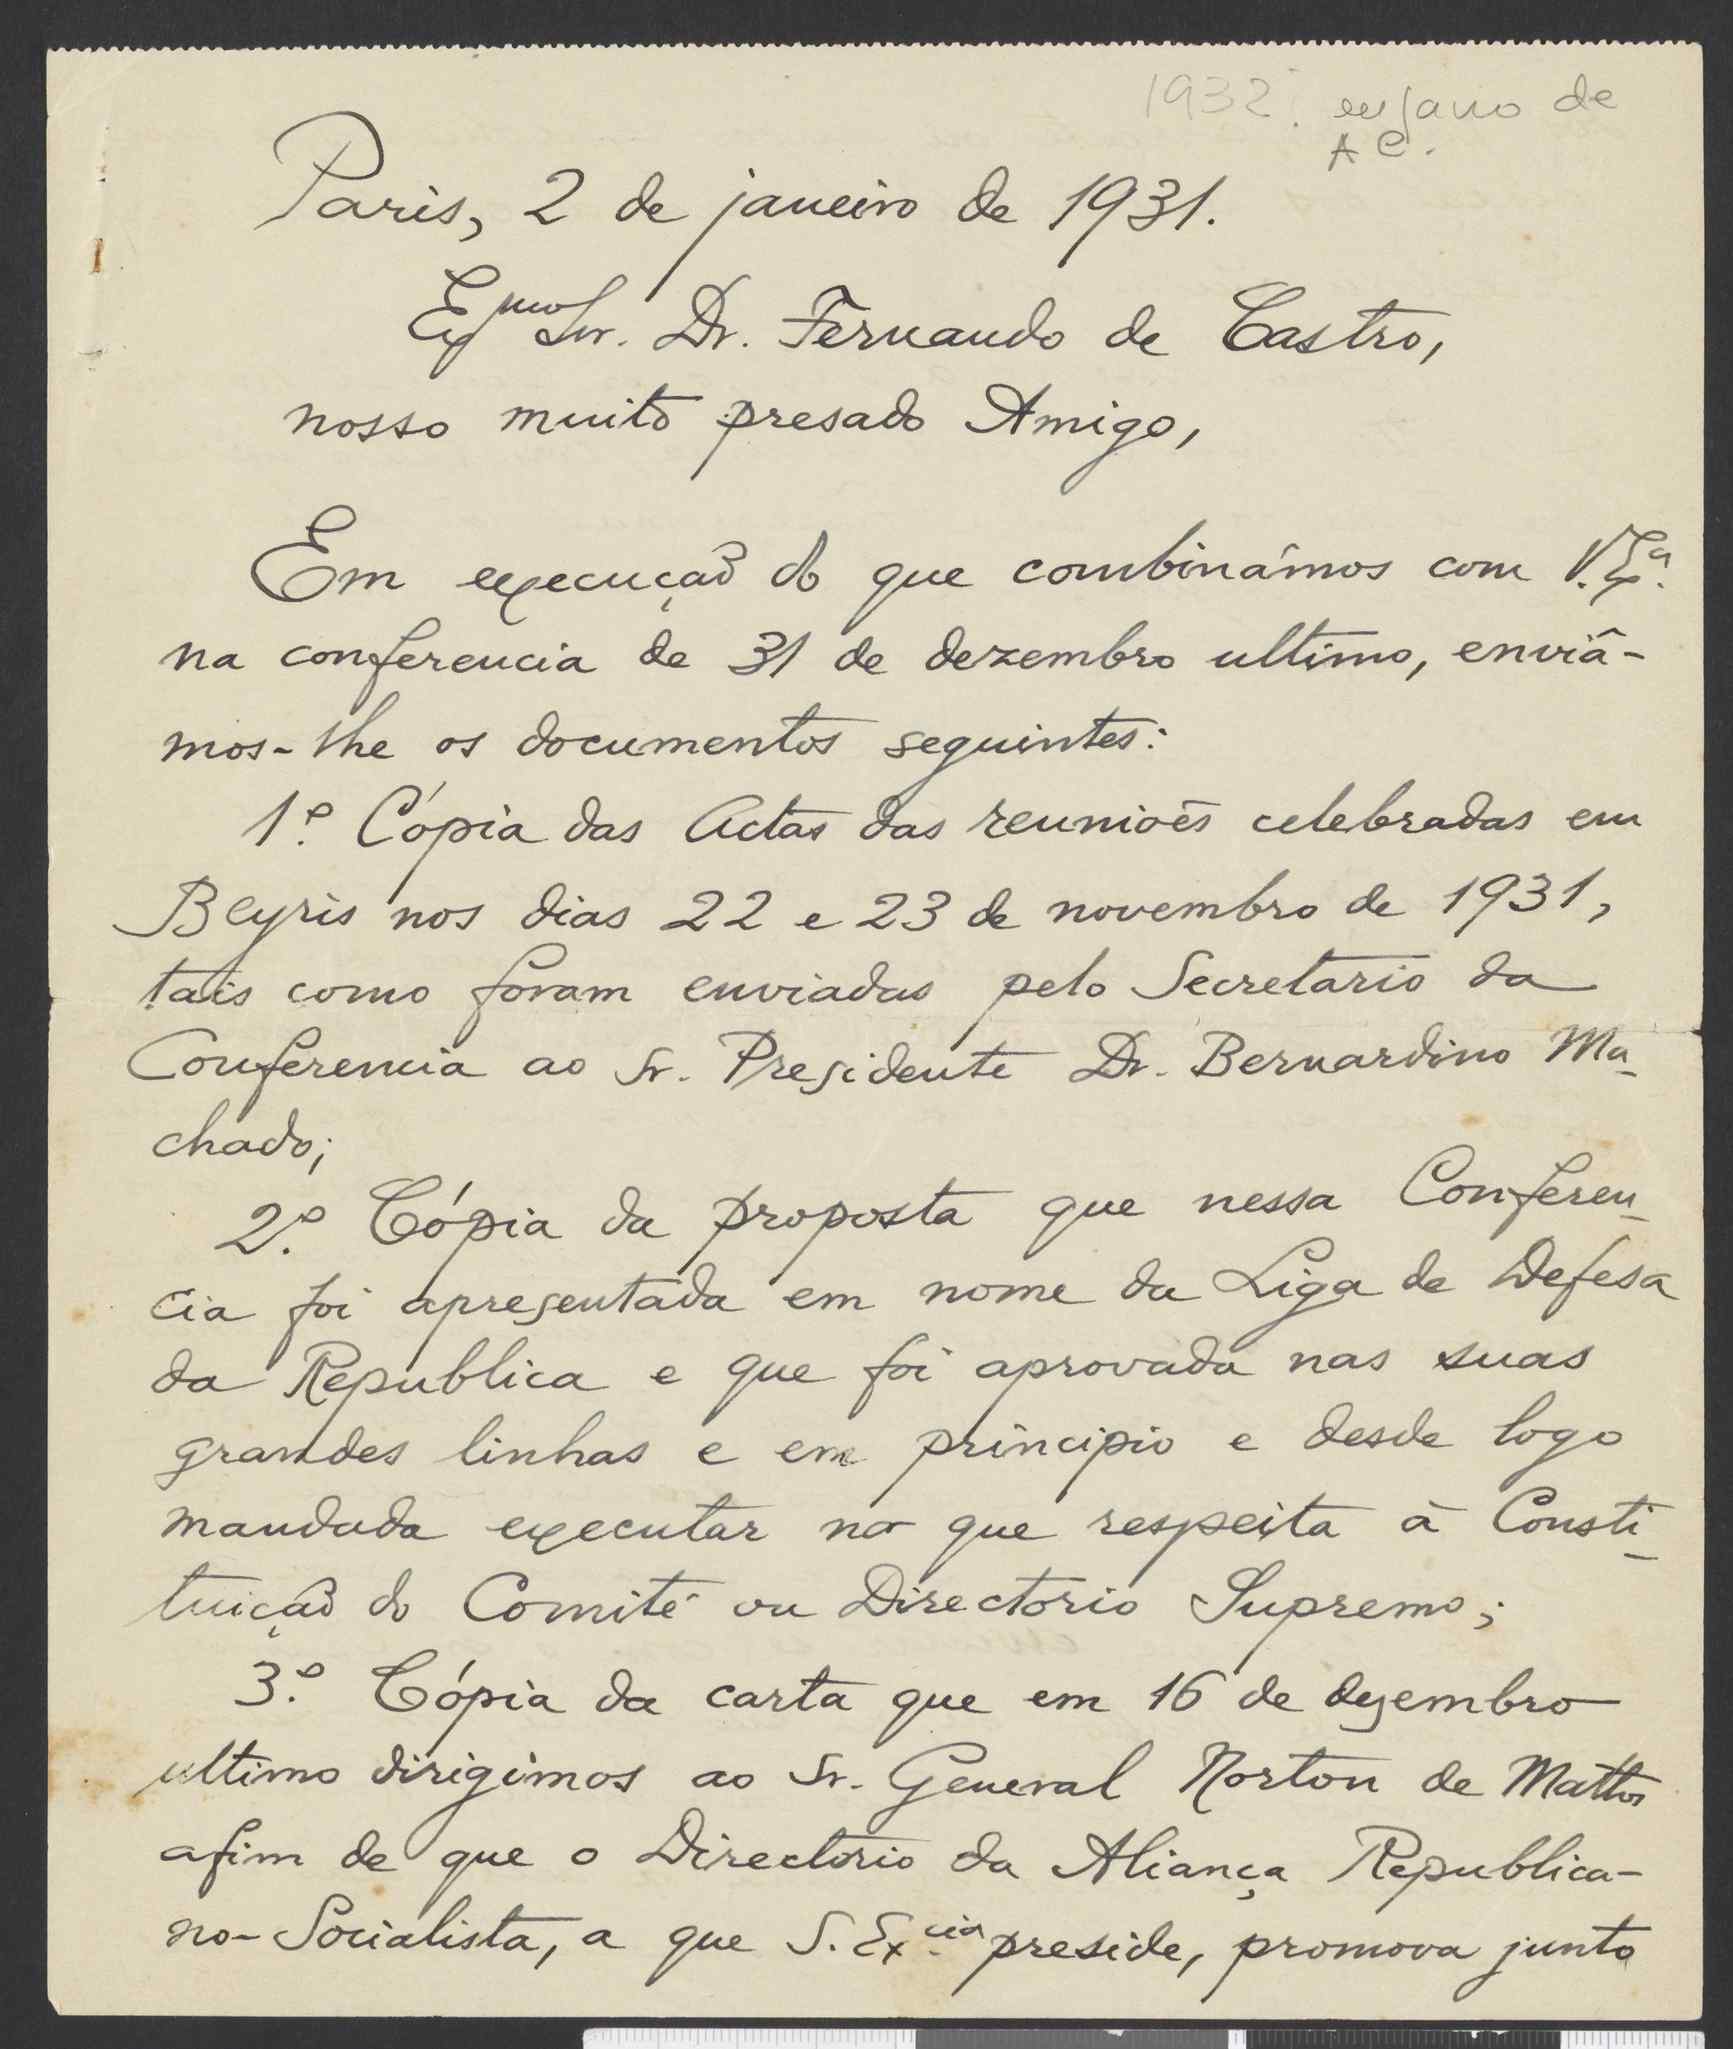 1932. engano de
A C.
Paris, 2 de janeiro de 1931.
Exmo Snr. Dr. Fernando de Castro,
nosso muito presado Amigo,
Em execução do que combinâmos com V. Exª.
na conferencia de 31 de dezembro ultimo, enviâ-
mos-lhe os documentos seguintes:
1º. Cópia das Actas das reuniões celebradas em
Beyris nos dias 22 e 23 de novembro de 1931,
tais como foram enviadas pelo Secretario da
Conferencia ao Sr. Presidente Dr. Bernardino Ma-
chado;
2º. Cópia da proposta que nessa Conferen-
cia foi apresentada em nome da Liga de Defesa
da Republica e que foi aprovada nas suas
grandes linhas e em principio e desde logo
mandada executar no que respeita à Consti-
tuição do Comité ou Directorio Supremo;
3º. Cópia da carta que em 16 de dezembro
ultimo dirigimos ao Sr. General Norton de Mattos
afim de que o Directorio da Aliança Republica-
no-Socialista, a que S. Excia. preside, promova junto